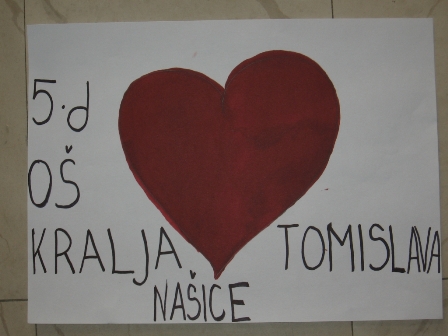 5.d
OŠ
KRALJA TOMISLAVA
NAŠICE